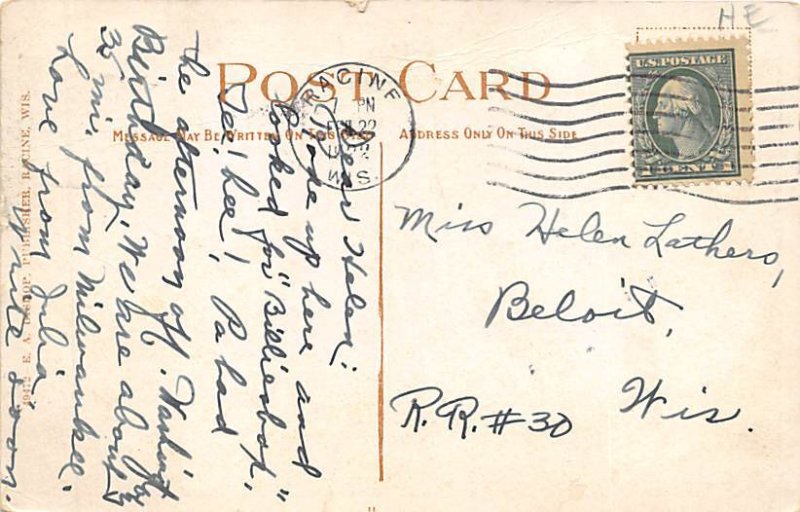 HE
POST CARD
MESSAGE MAY BE WRITTEN ON THIS SIDE
ADDRESS ONLY ON THIS SIDE
RACINE
7 PM
FEB 22
WIS.
U.S. POSTAGE
1 CENT 1
Dear Helen:
Rode up here and
looked for "Billienbob,"
Te! hee! Pa had
the afternoon off. Washington
Birthday, We are about
35 mi. from Milwaukee.
Love from Julia
write soon.
Miss Helen Lathers,
Beloit,
Wis.
R.R. #30
E. A. BISHOP, PUBLISHER, RACINE, WIS.